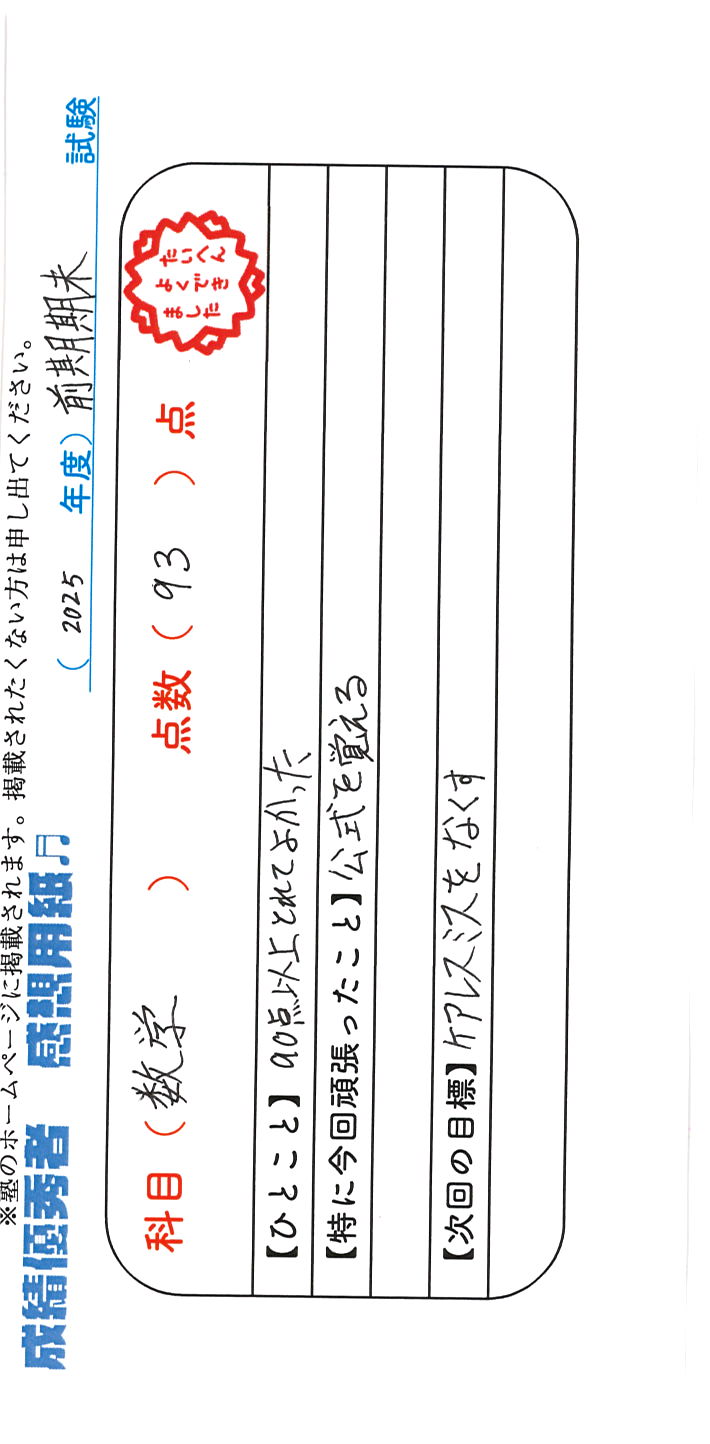 ※塾のホームページに掲載されます。掲載されたくない方は申し出てください。
成績優秀者 感想用紙♫
( 2025 年度) 前期期末 試験
科目 ( 数学 ) 点数 ( 93 ) 点
たいへん
よくでき
ました
【ひとこと】90点以上とれてよかった
【特に今回頑張ったこと】公式を覚える
【次回の目標】ケアレスミスをなくす